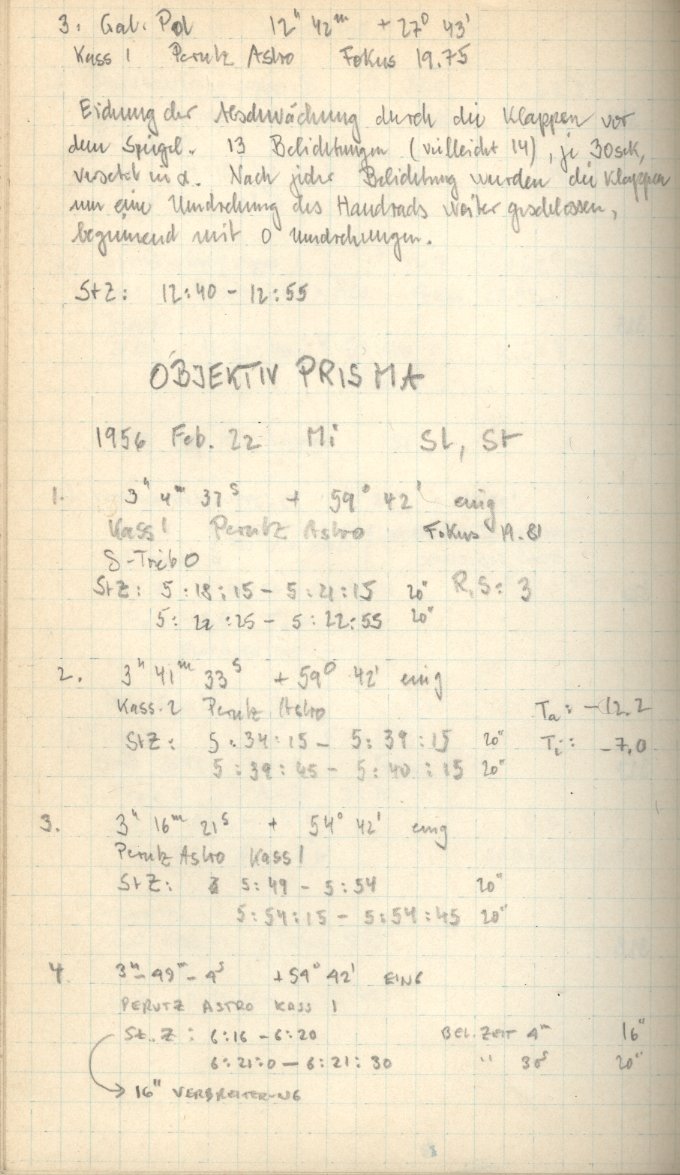 3. Gal. Pol 12ʰ 42ᵐ + 27⁰ 43'
Kass 1 Perutz Astro Fokus 19.75
Eichung der Abschwächung durch die Klappen vor
dem Spiegel. 13 Belichtungen (vielleicht 14), je 30sek,
versetzt in α. Nach jeder Belichtung wurden die Klappen
um eine Umdrehung des Handrads weiter geschlossen,
beginnend mit 0 Umdrehungen.
StZ: 12:40 - 12:55
OBJEKTIV PRISMA
1956 Feb. 22 Mi St, St
1. 3ʰ 4ᵐ 37ˢ + 59⁰ 42' eing
Kass 1 Perutz Astro Fokus 19.81
δ-Trieb 0
StZ: 5:18:15 - 5:21:15 20" R,S: 3
5:22:25 - 5:22:55 20"
2. 3ʰ 41ᵐ 33ˢ + 59⁰ 42' eing
Kass. 2 Perutz Astro Tₐ: -12.2
StZ: 5:34:15 - 5:39:15 20" Tᵢ: -7.0
5:39:45 - 5:40:15 20"
3. 3ʰ 16ᵐ 21ˢ + 54⁰ 42' eing
Perutz Astro Kass 1
StZ: 5:49 - 5:54 20"
5:54:15 - 5:54:45 20"
4. 3ʰ-49ᵐ-4ˢ +54⁰ 42' EING
PERUTZ ASTRO KASS 1
St. Z: 6:16 - 6:20 BEL. ZEIT 4ᵐ 16"
6:21:0 - 6:21:30 " 30ˢ 20"
→ 16" VERBREITERUNG